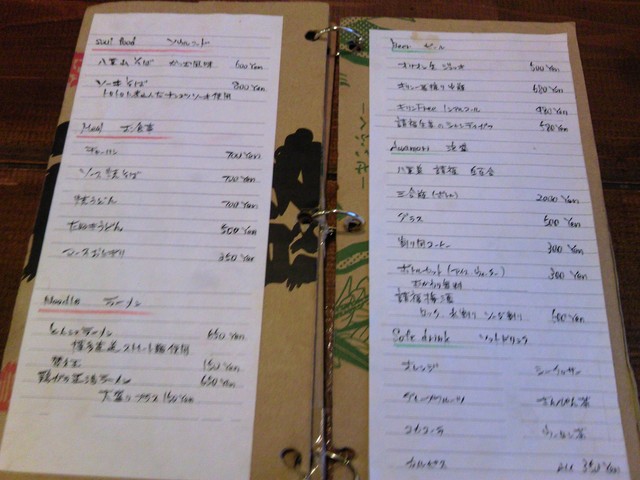 Soul food ソウルフード
八重山そば かつお風味 600 Yen
ソーキそば 800 Yen
とろとろ なんこつソーキ使用
Meal お食事
チャーハン 700 Yen
ソース焼そば 700 Yen
焼うどん 700 Yen
うどん 500 Yen
おにぎり 350 Yen
Noodle ラーメン
とんこつラーメン 650 Yen
博多直送ストレート麺使用
替え玉 150 Yen
鶏がら醤油ラーメン 650 Yen
大盛りプラス 150 Yen
Beer ビール
オリオン生 ジョッキ 500 Yen
キリン一番搾り 680 Yen
キリンFree ノンアルコール 480 Yen
請福 580 Yen
Awamori 泡盛
八重泉 請福
三合瓶 2000 Yen
グラス 500 Yen
割り用コーヒー 300 Yen
300 Yen
おかわり無料
請福梅酒
ロック 水割り ソーダ割り 500 Yen
Soft drink ソフトドリンク
オレンジ シークヮサー
グレープフルーツ さんぴん茶
コカコーラ ウーロン茶
カルピス ALL 350 Yen